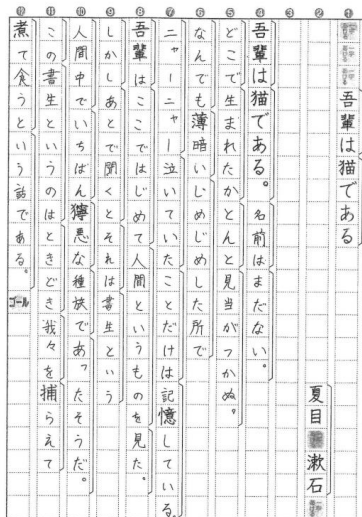 ① 吾輩は猫である
② 夏目漱石
③
④ 吾輩は猫である。名前はまだない。
⑤ どこで生まれたかとんと見当がつかぬ。
⑥ なんでも薄暗いじめじめした所で
⑦ ニャーニャー泣いていたことだけは記憶している。
⑧ 吾輩はここではじめて人間というものを見た。
⑨ しかしあとで聞くとそれは書生という
⑩ 人間中でいちばん獰悪な種族であったそうだ。
⑪ この書生というのはときどき我々を捕らえて
⑫ 煮て食うという話である。ゴール